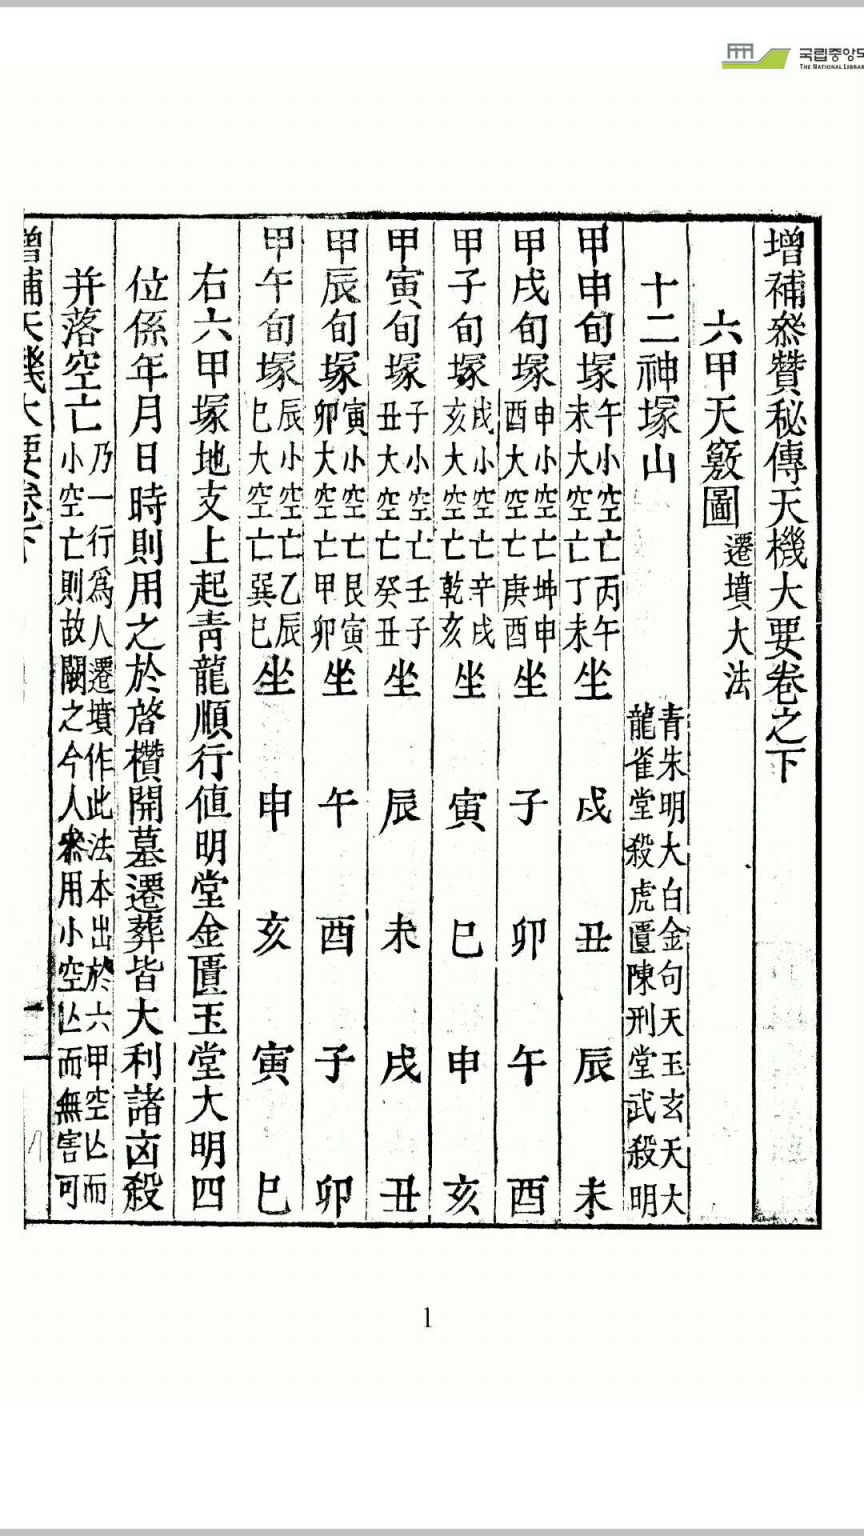 국립중앙도
THE NATIONAL LIBRAR
增補叅贊秘傳天機大要卷之下
六甲天竅圖 遷墳大法
十二神塚山 青朱明大白金句天玉玄天大
龍雀堂殺虎匱陳刑堂武殺明
甲申旬塚 午小空亡丙午 未大空亡丁未 坐 戌 丑 辰 未
甲戌旬塚 申小空亡坤申 酉大空亡庚酉 坐 子 卯 午 酉
甲子旬塚 戌小空亡辛戌 亥大空亡乾亥 坐 寅 巳 申 亥
甲寅旬塚 子小空亡壬子 丑大空亡癸丑 坐 辰 未 戌 丑
甲辰旬塚 寅小空亡艮寅 卯大空亡甲卯 坐 午 酉 子 卯
甲午旬塚 辰小空亡乙辰 巳大空亡巽巳 坐 申 亥 寅 巳
右六甲塚地支上起靑龍順行値明堂金匱玉堂大明四
位係年月日時則用之於啓欑開墓遷葬皆大利諸凶殺
并落空亡 乃一行爲人遷墳作此法本出於六甲空亡而
小空亡則故闕之今人叅用小空亡而無害可
增補天機大要卷下 一
1